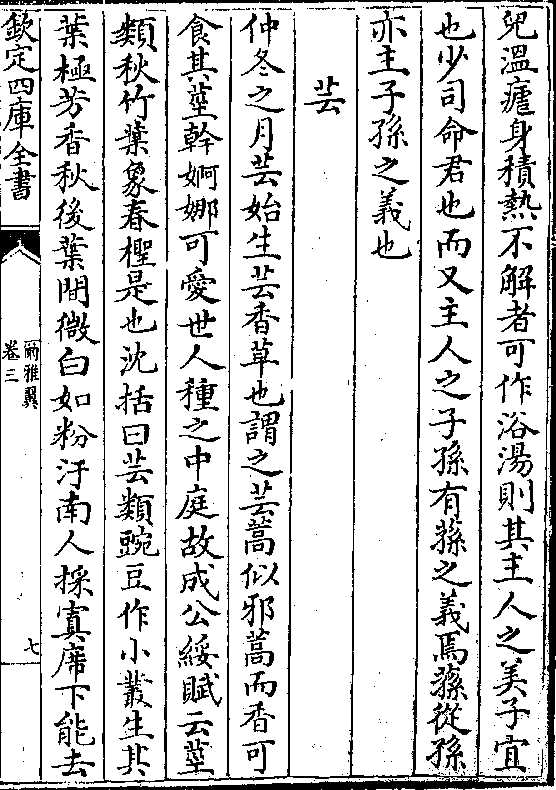 兒溫瘧身積熱不解者可作浴湯則其主人之美子宜
也少司命君也而又主人之子孫有蓀之義焉蓀從孫
亦主子孫之義也
芸
仲冬之月芸始生芸香草也謂之芸蒿似邪蒿而香可
食其莖幹婀娜可愛世人種之中庭故成公綏賦云莖
類秋竹葉象春檉是也沈括曰芸類豌豆作小叢生其
葉極芳香秋後葉間微白如粉汙南人採寘席下能去
欽定四庫全書
爾雅翼
卷三
七